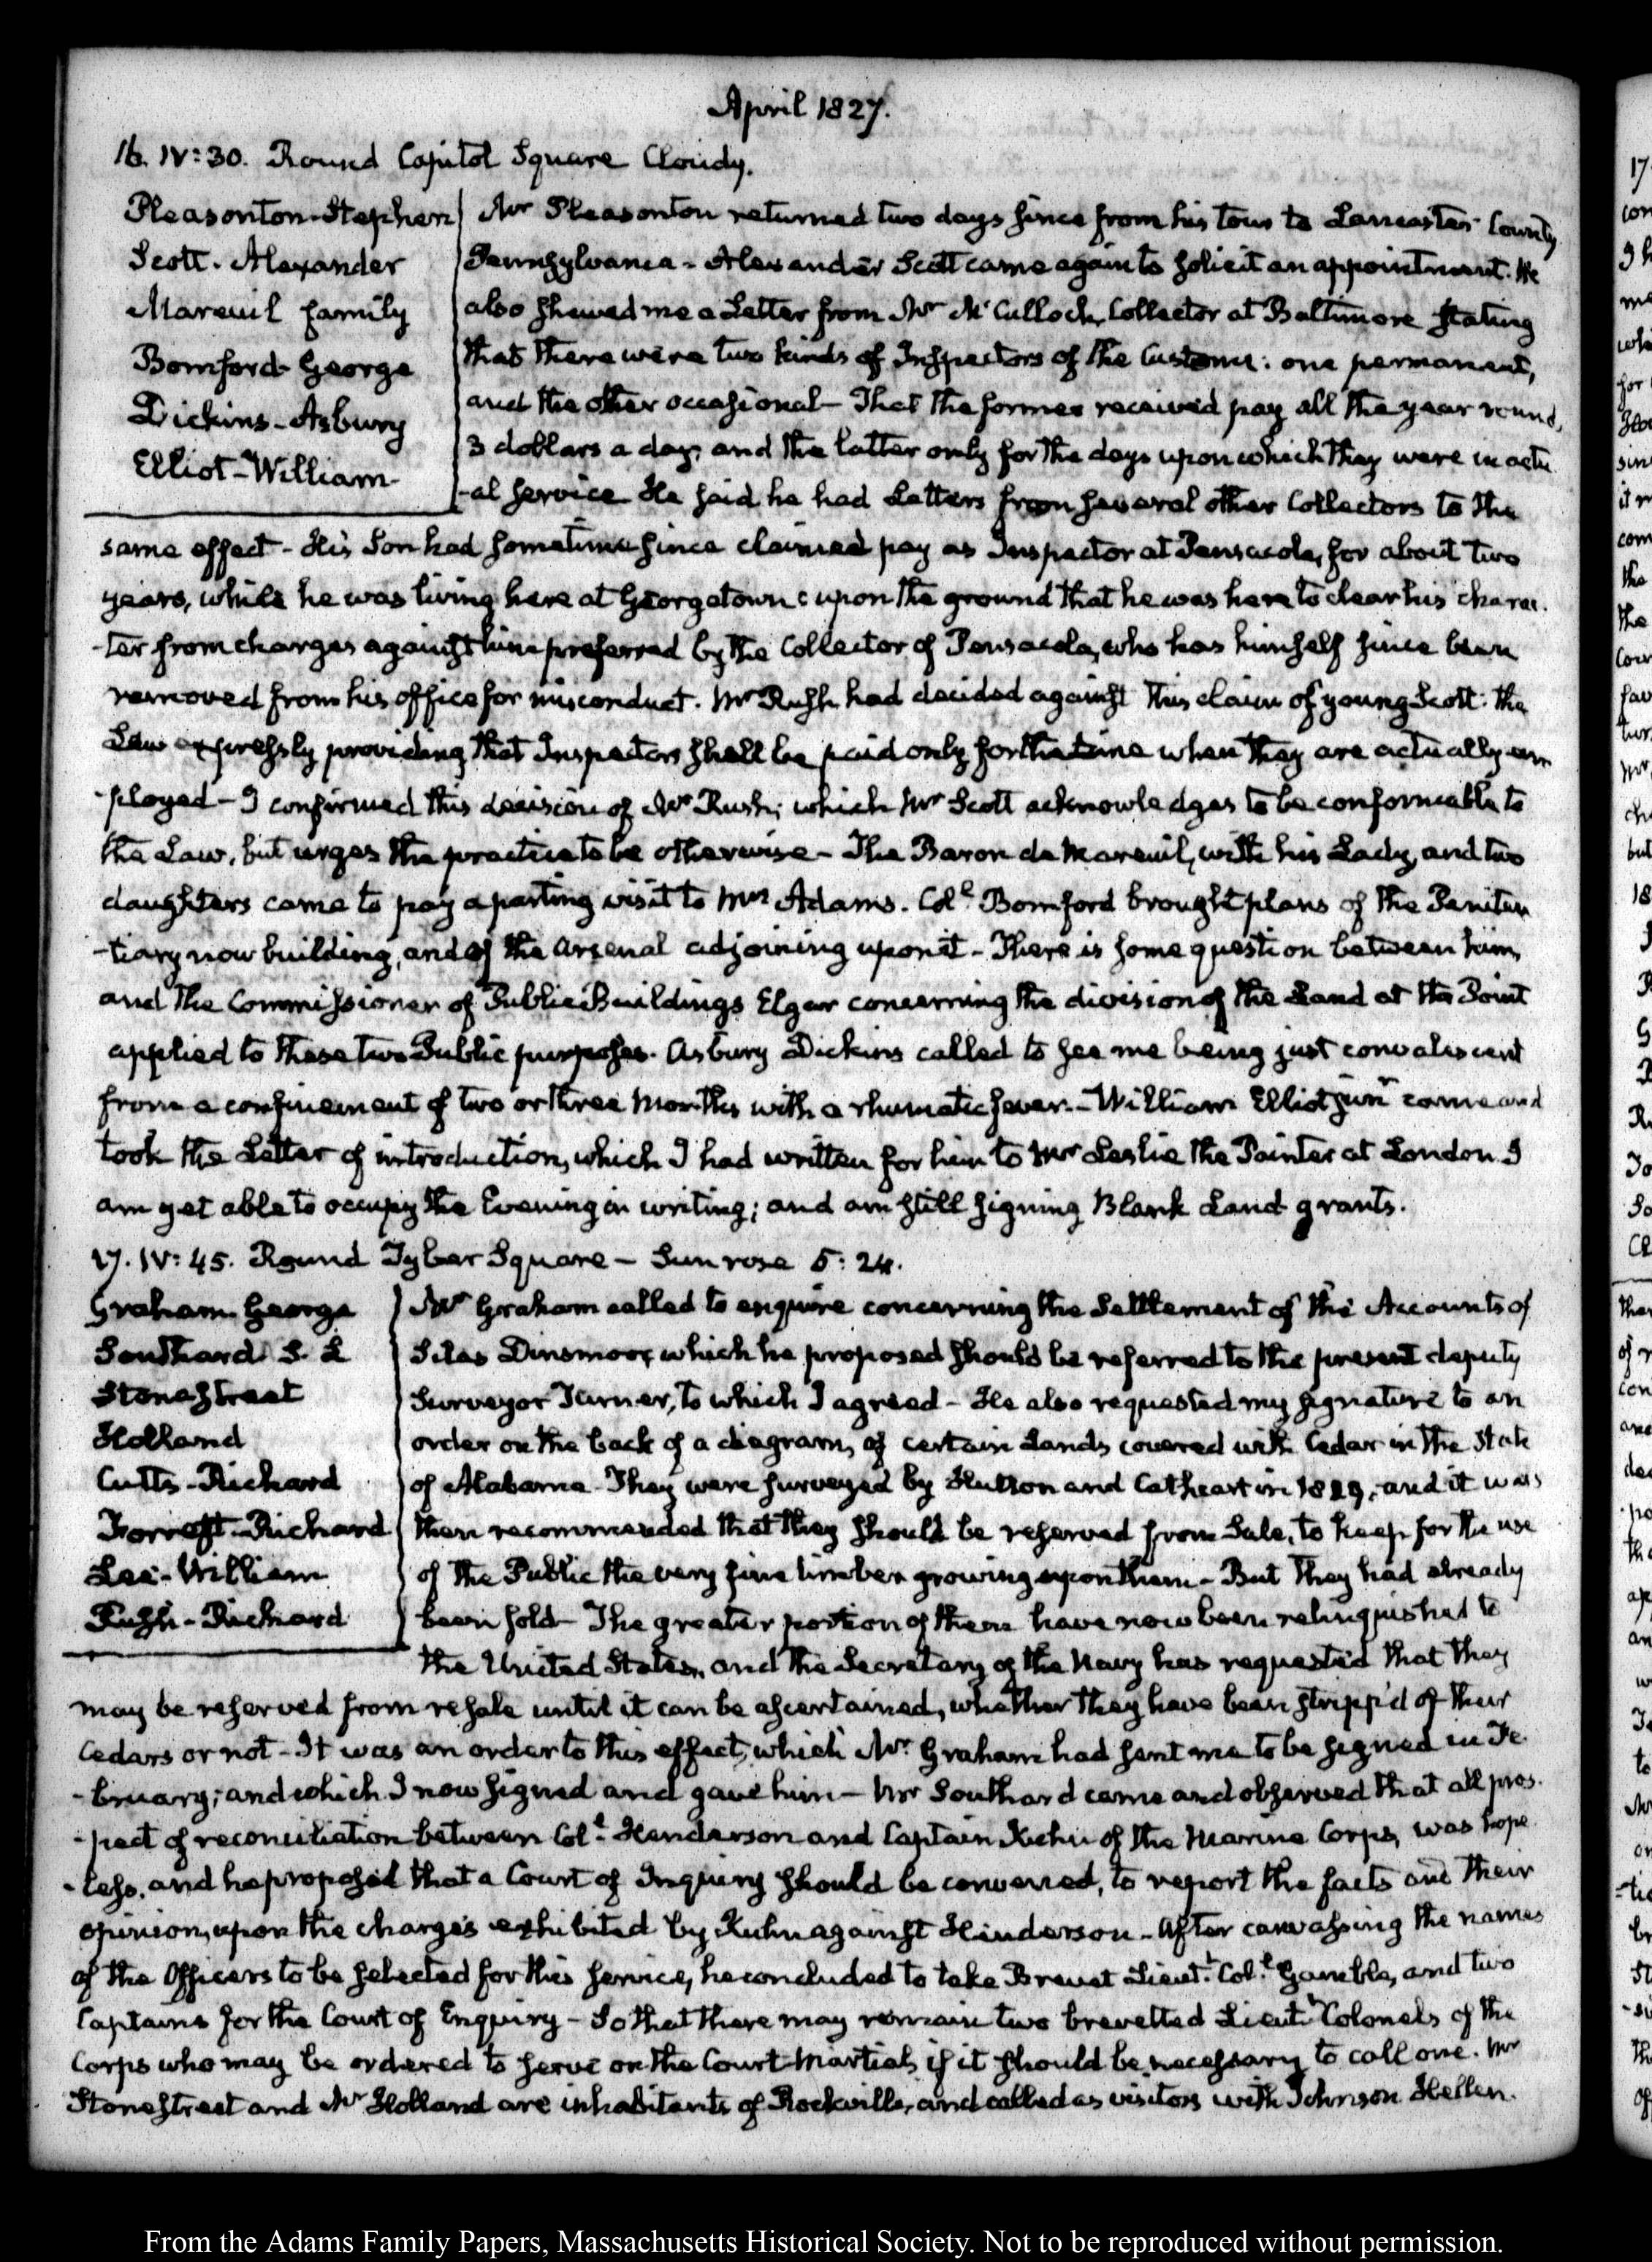 April 1827.
16. IV:30. Round Capitol Square Cloudy.
Pleasonton-Stephen
Scott. Alexander
Mareuil family
Bomford- George
Dickins-Asbury
Elliot-William-
Mr Pleasonton returned two days since from his tour to Lancaster County
Pennsylvania - Alexander Scott came again to solicit an appointment. He
also shewed me a Letter from Mr McCulloch, Collector at Baltimore stating
that there were two kinds of Inspectors of the Customs: one permanent,
and the other occasional- That the former received pay all the year round,
3 dollars a day, and the latter only for the days upon which they were in actu
-al service He said he had Letters from several other Collectors to the
same effect - His Son had sometime since claimed pay as Inspector at Pensacola, for about two
years, while he was living here at Georgetown: upon the ground that he was here to clear his charac.
-ter from charges against him preferred by the Collector of Pensacola, who has himself since been
removed from his office for misconduct. Mr Rush had decided against this claim of young Scott: the
Law expressly providing that Inspectors shall be paid only for the time when they are actually em
-ployed - I confirmed this decision of Mr Rush; which Mr Scott acknowledges to be conformable to
the Law, but urges the practice to be otherwise - The Baron de Mareuil, with his Lady, and two
daughters came to pay a parting visit to Mrs Adams. Coll. Bomford brought plans of the Peniten
-tiary now building, and of the Arsenal adjoining upon it - There is some question between him,
and the Commissioner of Public Buildings Elgar concerning the division of the Land at the Point
applied to these two Public purposes. Asbury Dickins called to see me being just convalescent
from a confinement of two or three Months with a rhumatic fever. - William Elliot junr came and
took the Letter of introduction, which I had written for him to Mr Leslie the Painter at London. I
am yet able to occupy the Evening in writing; and am still signing Blank Land grants.
17. IV:45. Round Tyber Square - Sun rose 5:24.
Graham George
Southard S. L
Stonestreet
Holland
Cutts-Richard
Forrest-Richard
Lee-William
Rush-Richard
Mr Graham called to enquire concerning the Settlement of the Accounts of
Silas Dinsmoor, which he proposed should be referred to the present deputy
Surveyor Turner, to which I agreed - He also requested my signature to an
order on the back of a diagram, of certain Lands covered with Cedar in the State
of Alabama They were surveyed by Hutton and Cathcart in 1819, and it was
then recommended that they should be reserved from Sale, to keep for the use
of the Public the very fine timber growing upon them - But they had already
been sold - The greater portion of them have now been relinquished to
the United States, and the Secretary of the Navy has requested that they
may be reserved from resale until it can be ascertained, whether they have been stripp'd of their
Cedars or not - It was an order to this effect, which Mr. Graham had sent me to be signed in Fe
-bruary; and which I now signed and gave him - Mr Southard came and observed that all pros-
-pect of reconciliation between Coll. Henderson and Captain Kuhn of the Marine Corps, was hope
-less, and he proposed that a Court of Inquiry should be convened, to report the facts and their
opinion, upon the charges exhibited by Kuhn against Henderson - After canvassing the names
of the Officers to be selected for this service, he concluded to take Brevet Lieut. Coll. Gamble, and two
Captains for the Court of Enquiry - So that there may remain two brevetted Lieutt Colonels of the
Corps who may be ordered to serve on the Court-Martial, if it should be necessary to call one. Mr
Stonestreet and Mr Holland are inhabitants of Rockville, and called as visitors with Johnson Hellen.
From the Adams Family Papers, Massachusetts Historical Society. Not to be reproduced without permission.